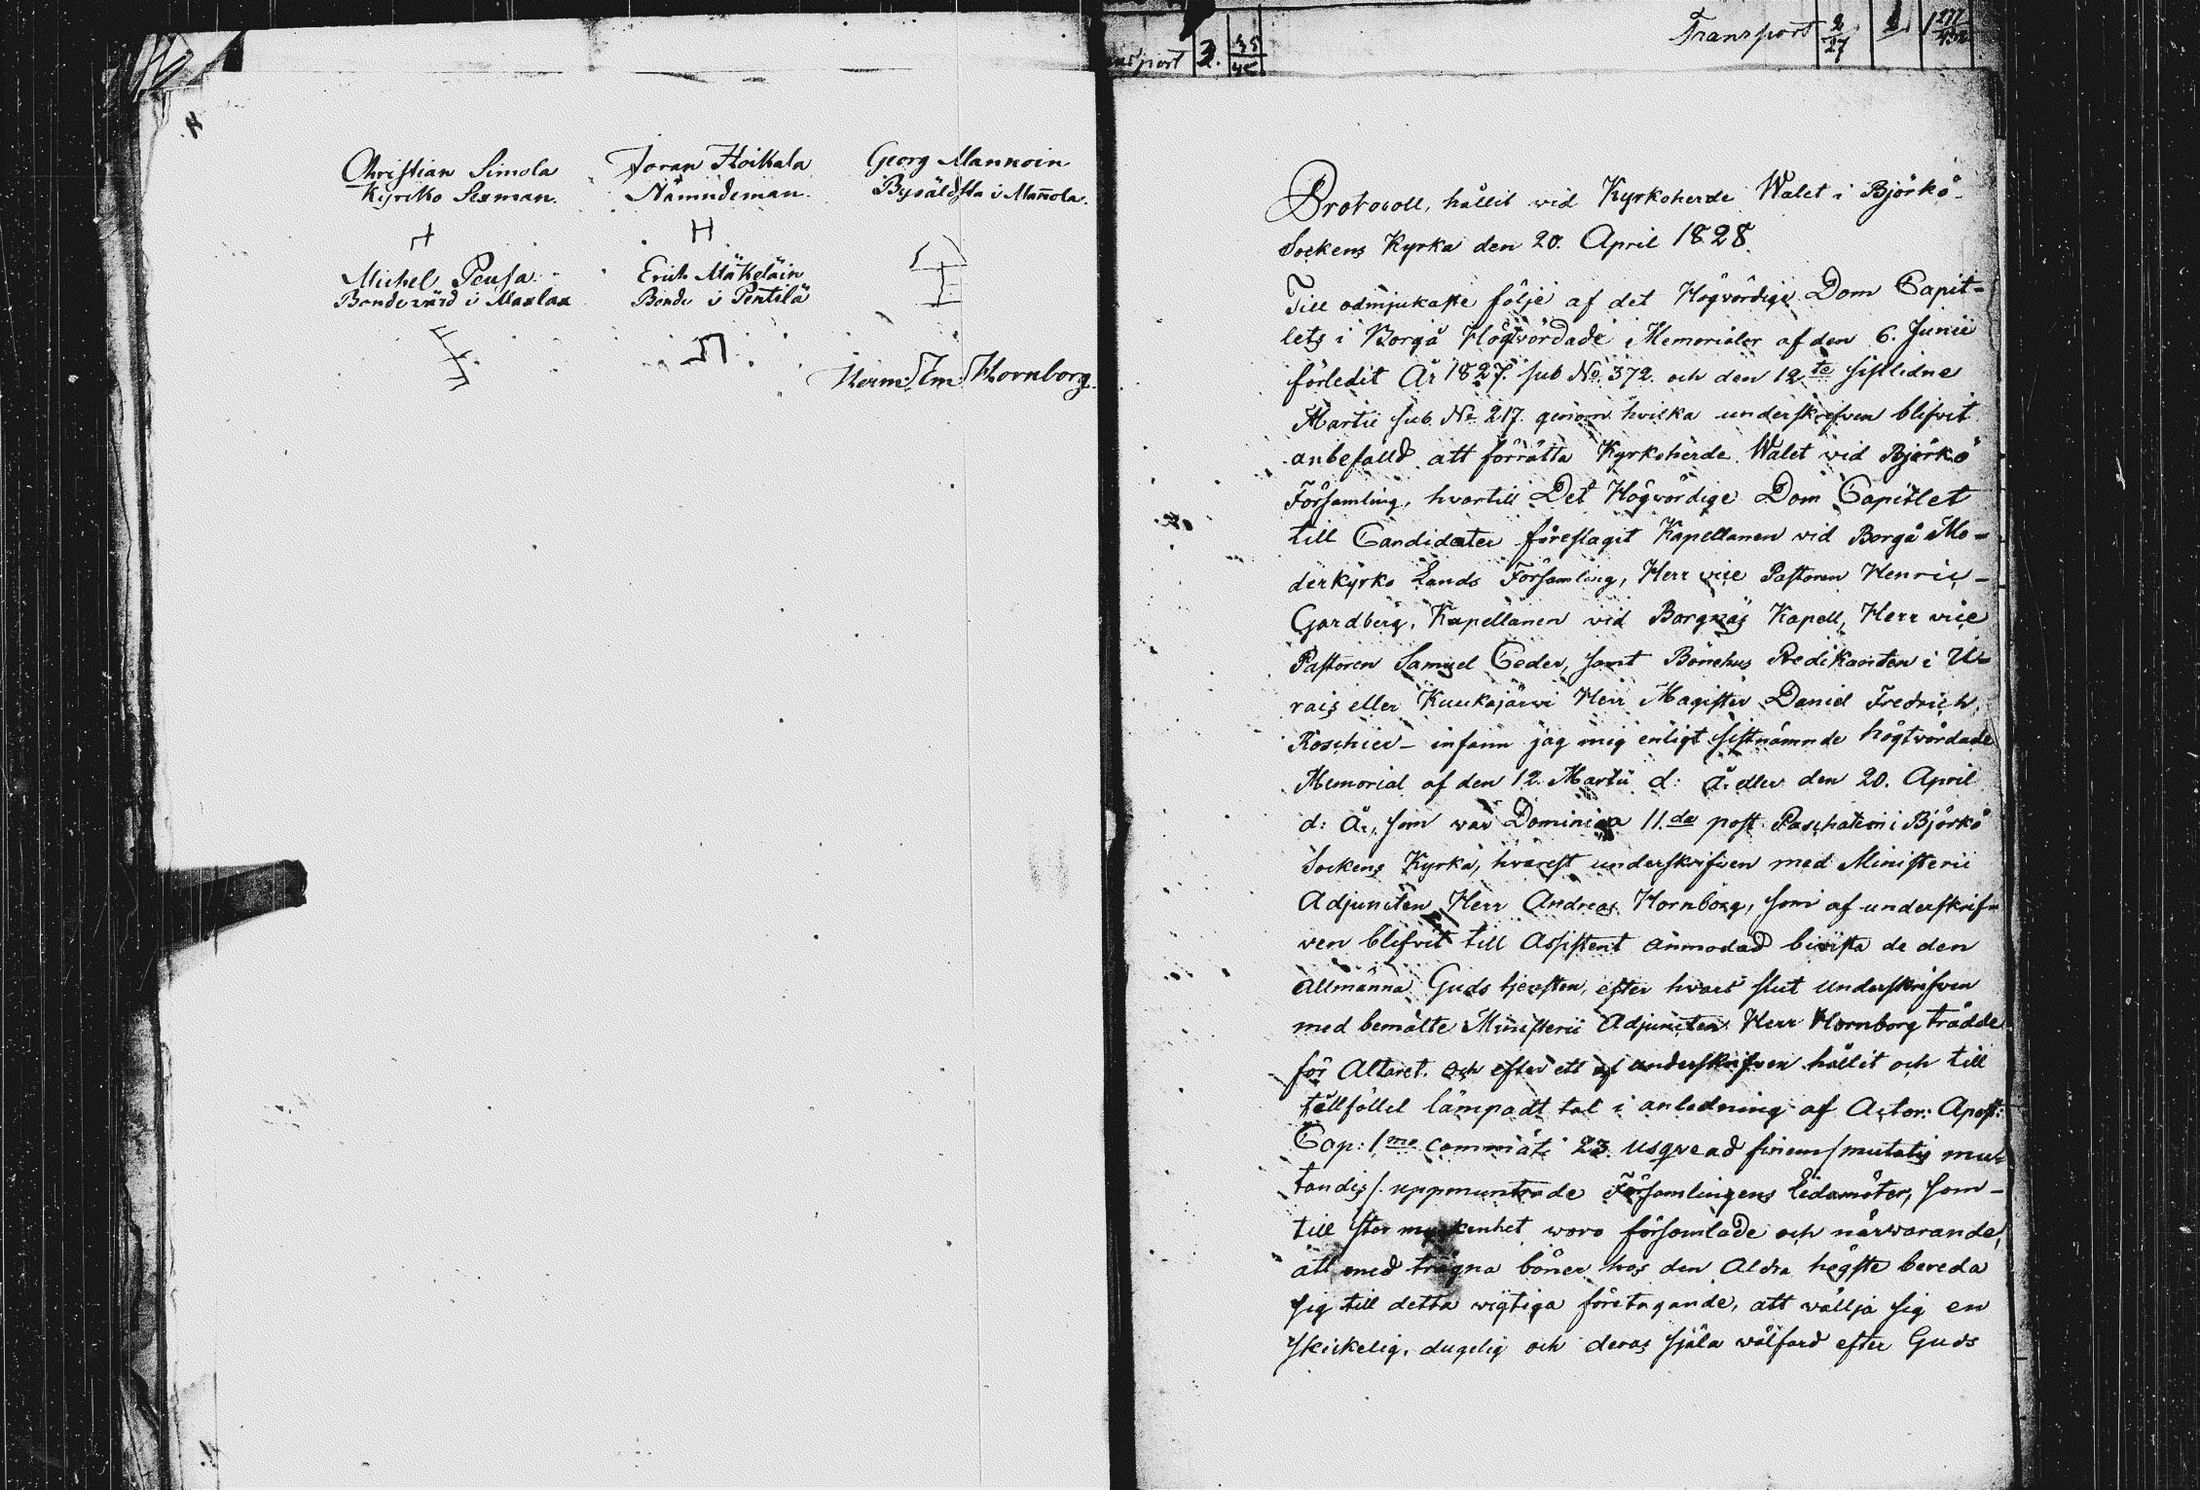 Transport 3. 35/45
Christian Simola
Kyrcko Sexman.
Joran Hoikala
Nämndeman.
Georg Mannoin
Byäldsta i Mañola.
Michel Peusa
Bondevärd i Maslax
Erich Mäkeläin
Bonde i Pentilä
Herm: Im: Hornborg.
Transport 2/27 1
Protocoll, hållit vid Kyrkoherde Walet i Björkö
Sockens Kyrka den 20. April 1828.
Till ödmjukaste följe af det Högvördige Dom Capit-
lets i Borgå Högtvördade Memorialer af den 6. Junii
förledit År 1827. sub No. 372. och den 12te sistlidne
Martii sub. No 217. genom hvilka underskrefven blifvit
anbefalld att förrätta Kyrkoherde Walet vid Björkö
Församling, hvartill Det Högvördige Dom Capitlet
till Candidater föreslagit Kapellanen vid Borgå Mo-
derkyrko Lands Församling, Herr vice Pastoren Henric
Gardberg, Kapellanen vid Borgnäs Kapell, Herr vice
Pastoren Samuel Ceder, samt Bönehus Predikanten i U-
rais eller Kuukajärwi Herr Magister Daniel Fredrich
Roschier - infann jag mig enligt sistnämnde högtvördade
Memorial af den 12. Martii d: å. eller den 20. April
d: År, som var Dominica 11.da post Paschatem i Björkö
Sockens Kyrka, hvarest underskrifven med Ministerii
Adjuncten Herr Andreas Hornborg, som af underskrif-
ven blifvit till Assistent anmodad bivista de den
allmänna Gudstjensten, efter hvars slut underskrifven
med bemälte Ministerii Adjuncten Herr Hornborg trädde
för Altaret. och efter ett af underskrifven hållit och till
tillfället lämpadt tal i anledning af Actor: Apost:
Cap: 1mo commate 23. usqve ad finem /mutatis mu-
tandis/. uppmuntrade Församlingens Ledamöter, som
till stor myckenhet woro församlade och närwarande,
att med trägna böner hos den Aldra högste bereda
sig till detta wigtiga företagande, att wällja sig en
skickelig, dugelig och deras själa wälfard efter Guds